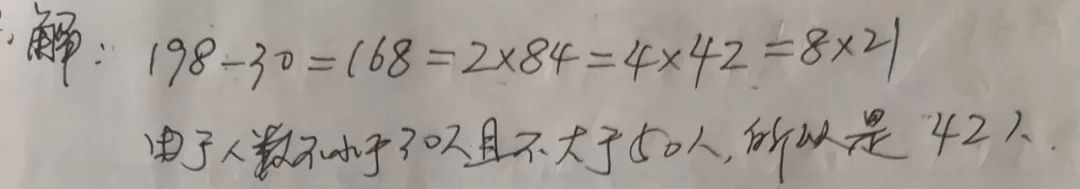 解：198-30=168=2×84=4×42=8×21
由于人数不小于30人且不大于50人，所以是 42人.